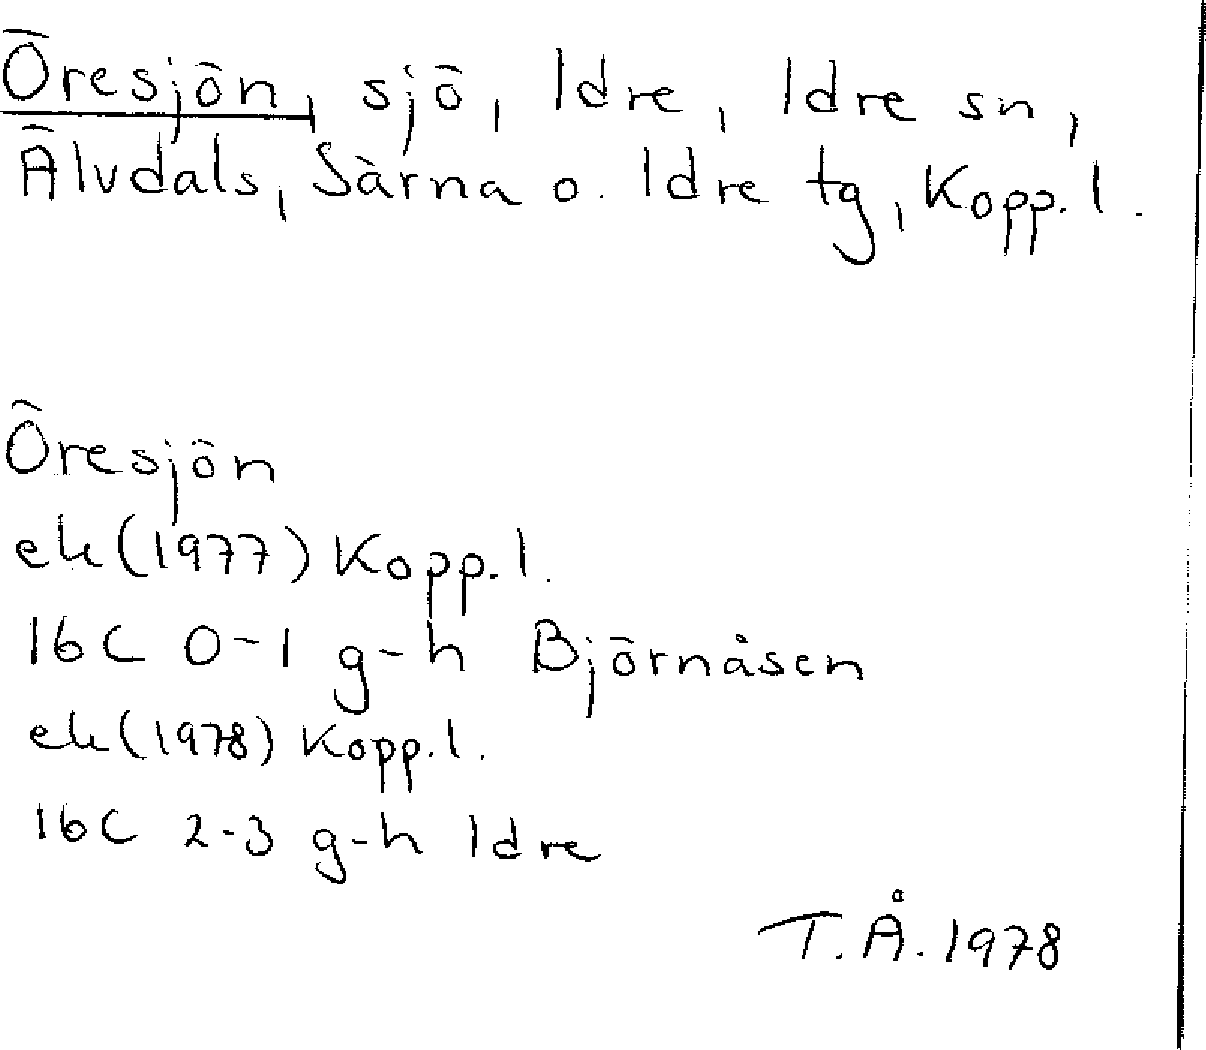 Öresjön, sjö, Idre, Idre sn,
Älvdals, Särna o. Idre tg, Kopp. l.
Öresjön
ek (1977) Kopp. l.
16C 0-1 g-h Björnåsen
ek (1978) Kopp. l.
16C 2-3 g-h Idre
T.Å. 1978